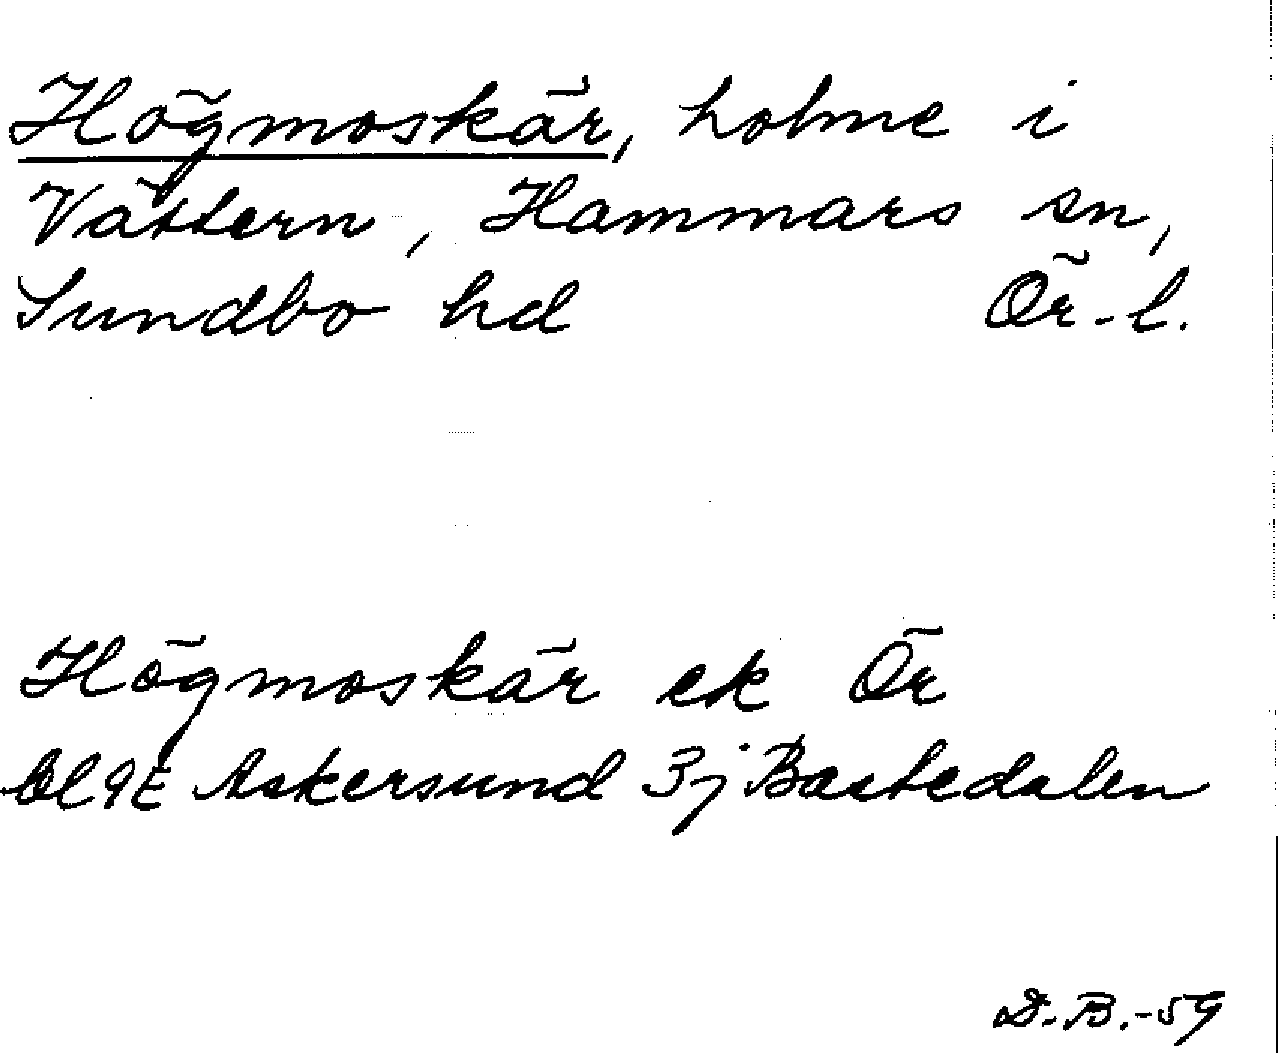 Högmoskär, holme i
Vättern, Hammars sn,
Sundbo hd Ör-l.
Högmoskär ek Ör
bl 9E Askersund 3j Bastedalen
D.B.-59